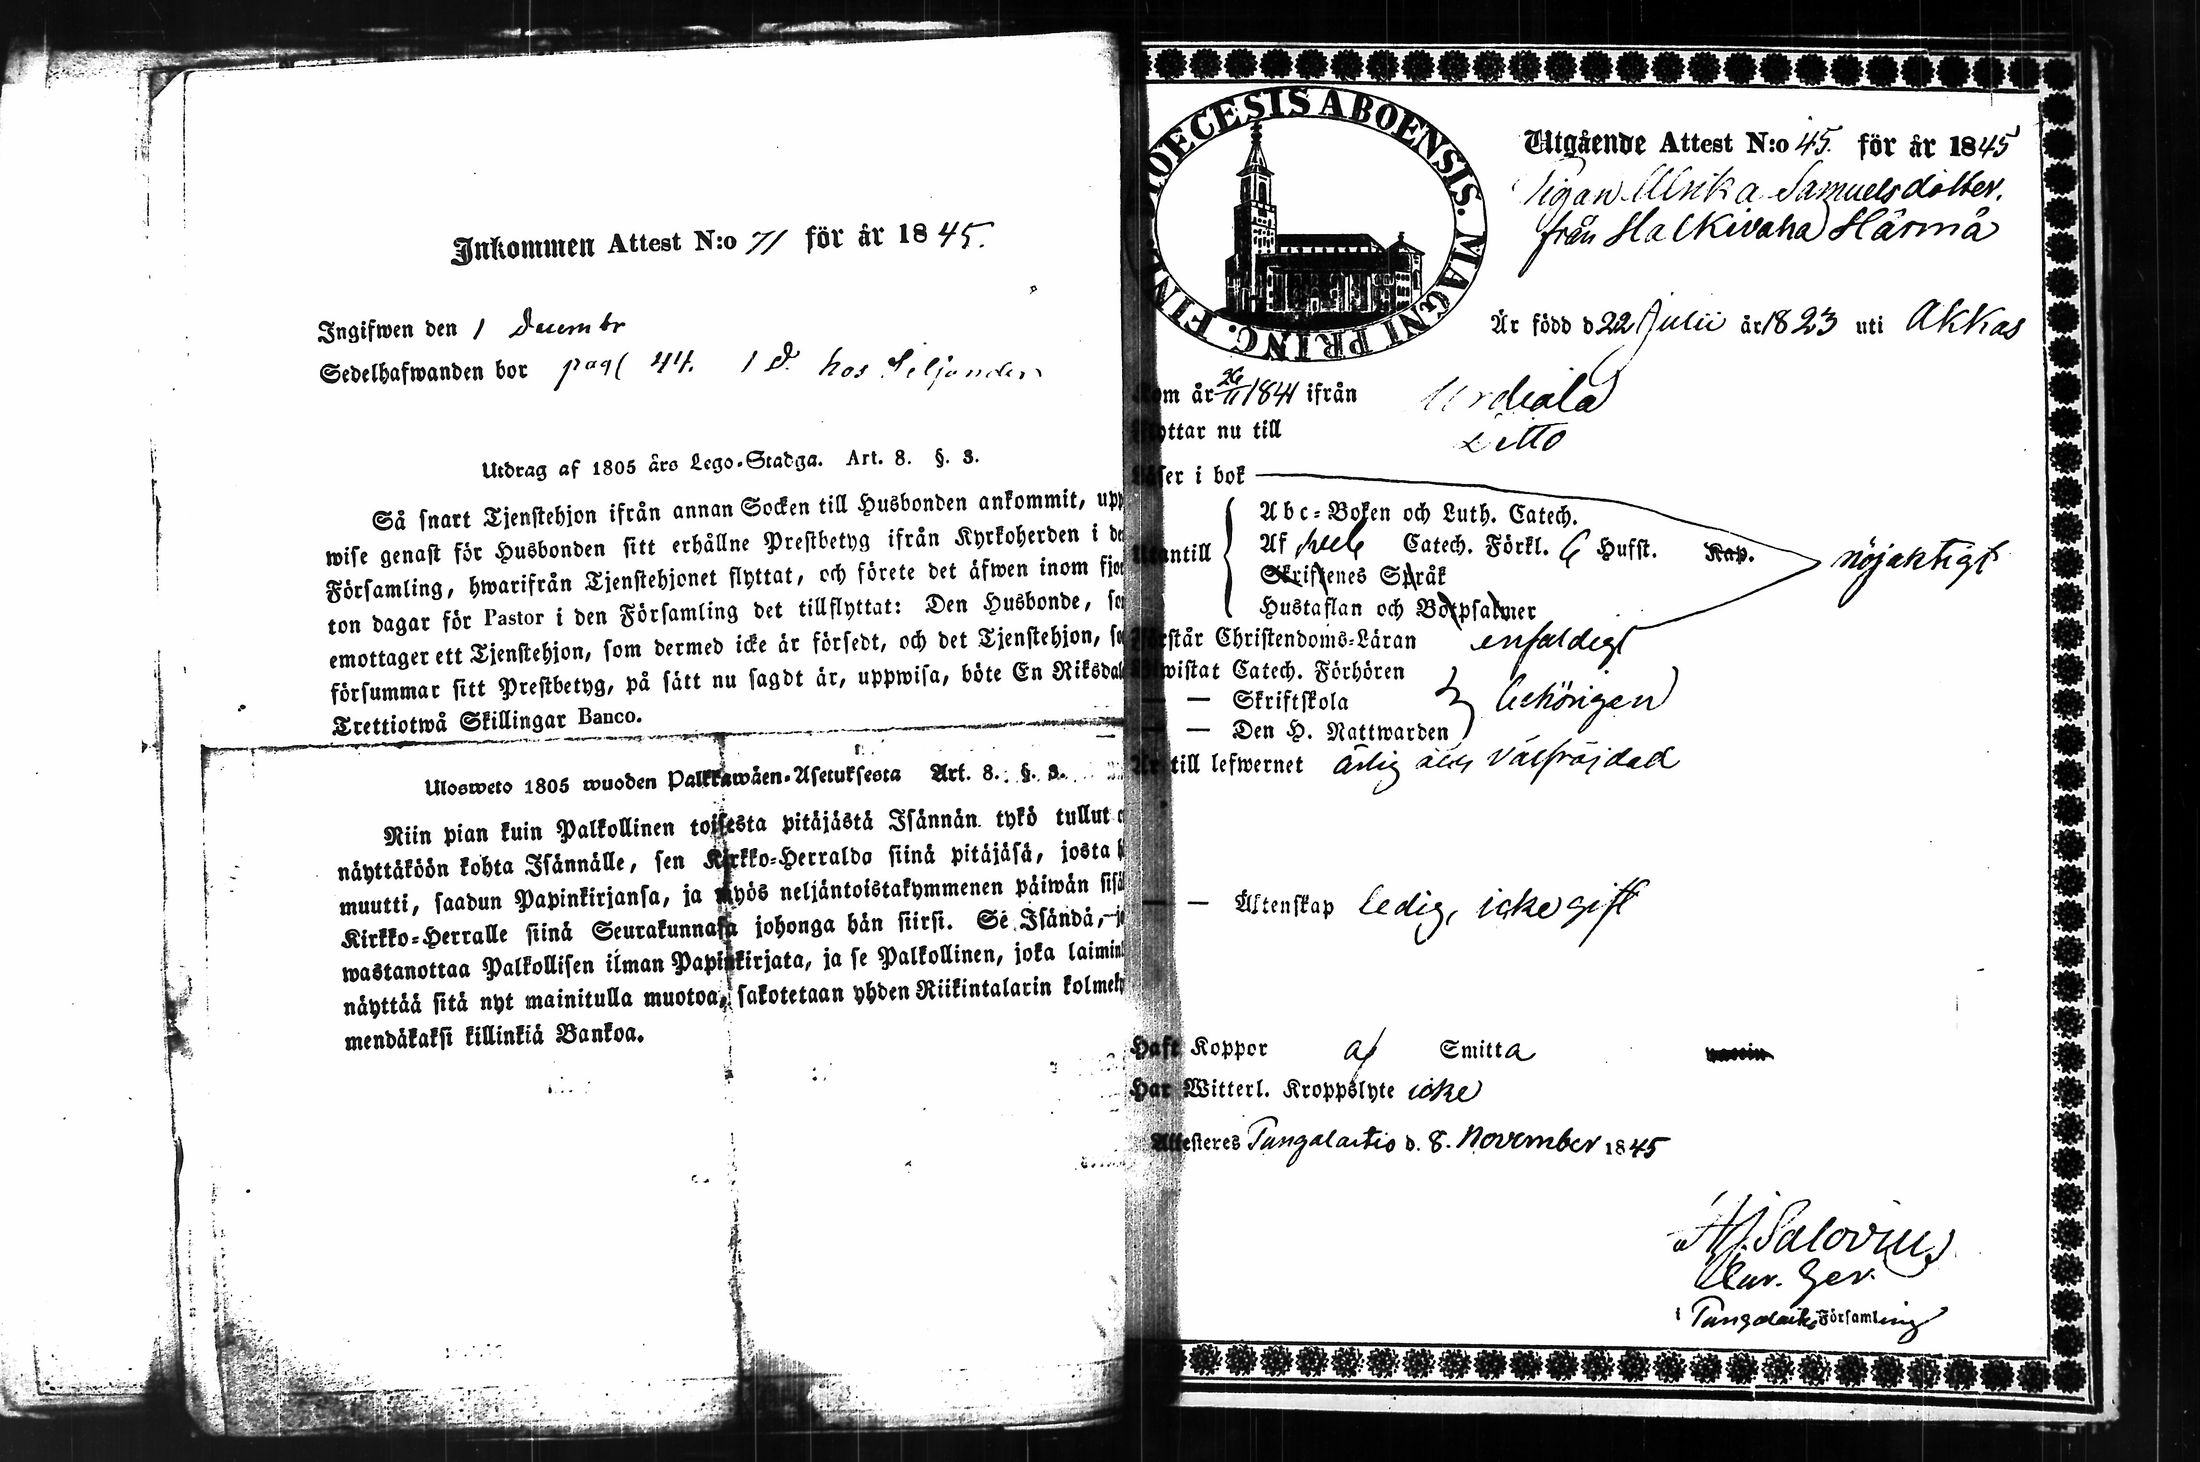 Inkommen Attest N:o 71 för år 1845.
Ingifwen den 1 Decembr
Sedelhafwanden bor pag 44. 1 D. hos Siljander
Utdrag af 1805 års Lego-Stadga. Art. 8. §. 3.
Så snart Tjenstehjon ifrån annan Socken till Husbonden ankommit, upp
wise genast för Husbonden sitt erhållne Prestbetyg ifrån Kyrkoherden i de
Församling, hwarifrån Tjenstehjonet flyttat, och förete det äfwen inom fjor
ton dagar för Pastor i den Församling det tillflyttat: Den Husbonde, so
emottager ett Tjenstehjon, som dermed icke är försedt, och det Tjenstehjon, so
försummar sitt Prestbetyg, på sätt nu sagdt är, uppwisa, böte En Riksdal
Trettiotwå Skillingar Banco.
Ulosweto 1805 wuoden Palkkawäen-Asetuksesta Art. 8. §. 3.
Niin pian kuin Palkollinen toisesta pitäjästä Isännän tykö tullut o
näyttäköön kohta Isännälle, sen Kirkko-Herralda siinä pitäjäsä, josta h
muutti, saadun Papinkirjansa, ja myös neljäntoistakymmenen päiwän sisä
Kirkko-Herralle siinä Seurakunnasa johonga hän siirsi. Se Isändä, jo
wastanottaa Palkollisen ilman Papinkirjata, ja se Palkollinen, joka laimin
näyttää sitä nyt mainitulla muotoa, sakotetaan yhden Riikintalarin kolmeky
mendäkaksi killinkiä Bankoa.
DIOECESIS ABOENSIS. MAGNI PRINC. FIN
Utgående Attest N:o 45. för år 1845
Pigan Ulrika Samuelsdotter.
från Halkivaha Härmä
Är född d 22 Julii år 1823 uti Akkas
Kom år 26/11 1844 ifrån Urdiala
Flyttar nu till Ditto
Läser i bok
Abc-Boken och Luth. Catech.
Utantill Af hela Catech. Förkl. 6 Hufst. Kap. nöjaktigt
Skriftenes Språk
Hustaflan och Botpsalmer
Förstår Christendoms-Läran enfaldigt
Biwistat Catech. Förhören
— — Skriftskola behörigen
— — Den H. Nattwarden
Är till lefwernet ärlig och välfräjdad
— — Äktenskap ledig, icke gift
Haft Koppor af Smitta
Har Witterl. Kroppslyte icke
Attesteres Tungalaitio d. 8. November 1845
Salovius
i Församling